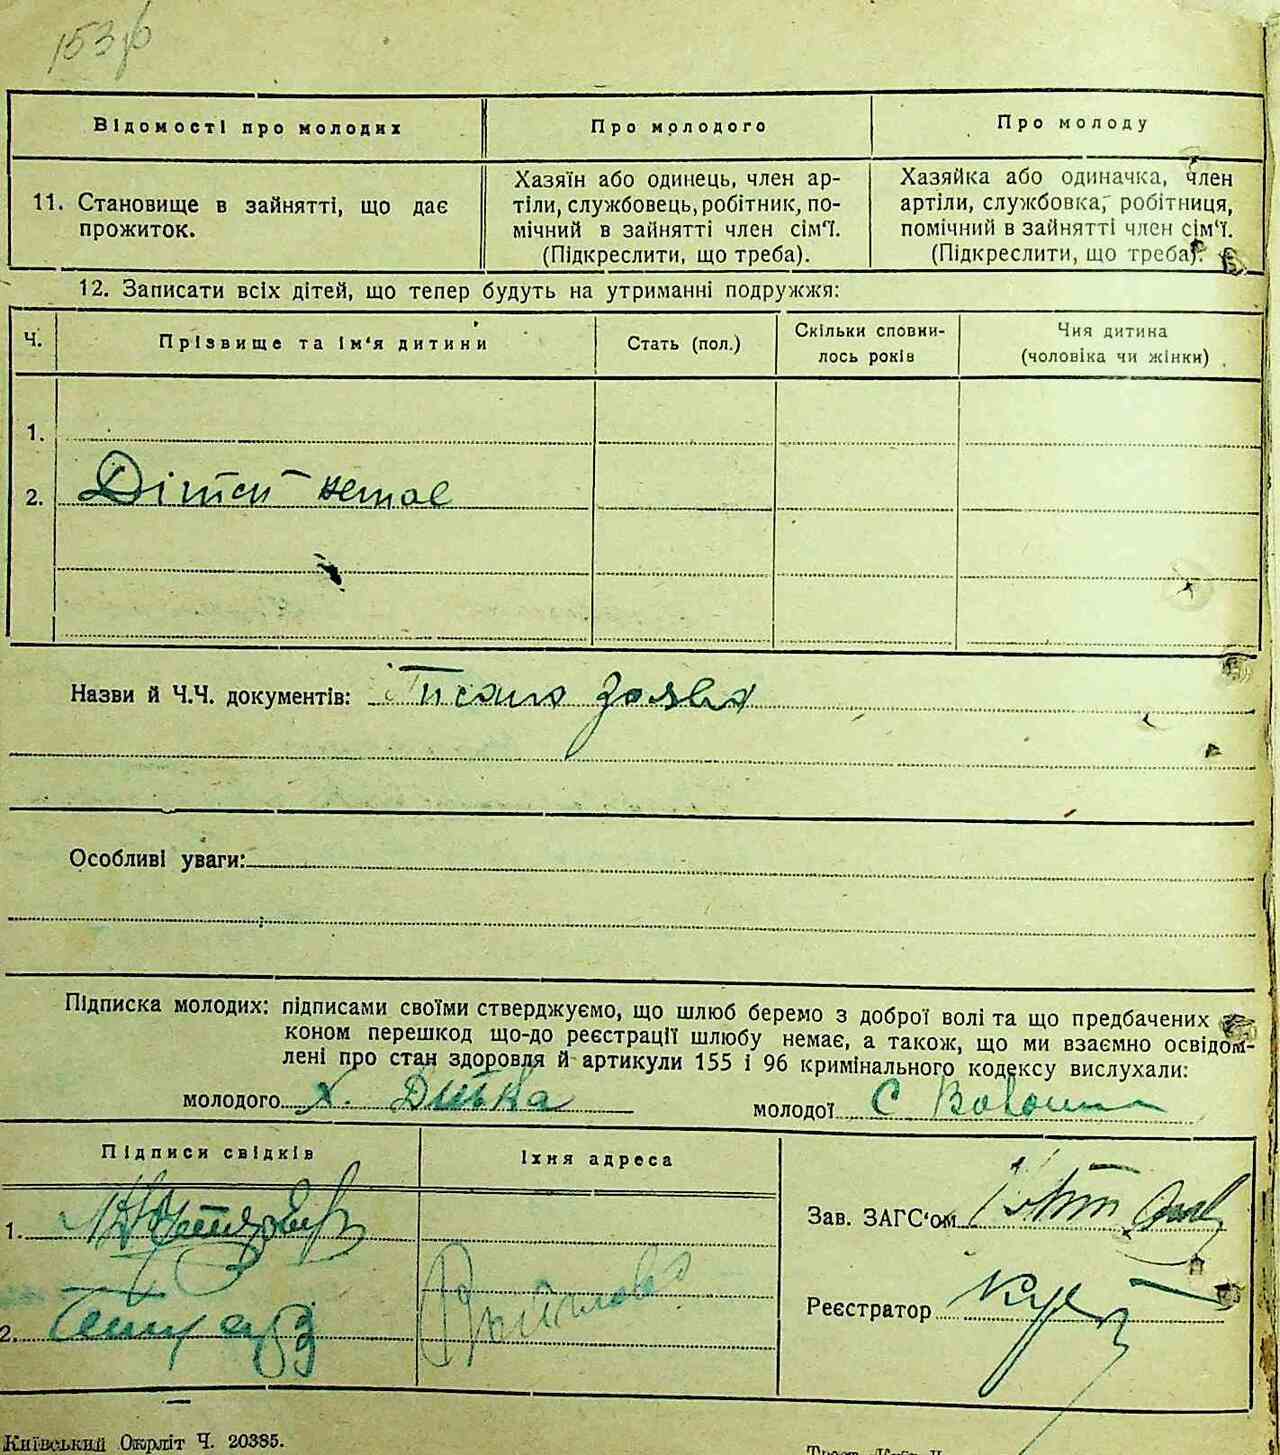 Відомості про молодих
Про молодого
Про молоду
11. Становище в зайнятті, що дає
прожиток.
Хазяїн або одинець, член ар-
тіли, службовець, робітник, по-
мічний в зайнятті член сім‘ї.
(Підкреслити, що треба).
Хазяйка або одиначка, член
артіли, службовка, робітниця,
помічний в зайнятті член сім‘ї.
(Підкреслити, що треба).
12. Записати всіх дітей, що тепер будуть на утриманні подружжя:
Ч.
Прізвище та ім‘я дитини
Стать (пол.)
Скільки сповни-
лось років
Чия дитина
(чоловіка чи жінки)
1.
2. Дітей немає
Назви й Ч.Ч. документів: Писана заява
Особливі уваги:
Підписка молодих: підписами своїми стверджуємо, що шлюб беремо з доброї волі та що предбачених
коном перешкод що-до реєстрації шлюбу немає, а також, що ми взаємно освідом-
лені про стан здоровля й артикули 155 і 96 кримінального кодексу вислухали:
молодого Х. Дитька
молодої С
Підписи свідків
Їхня адреса
1.
2.
Зав. ЗАГС‘ом
Реєстратор
Київський Окрліт Ч. 20385.